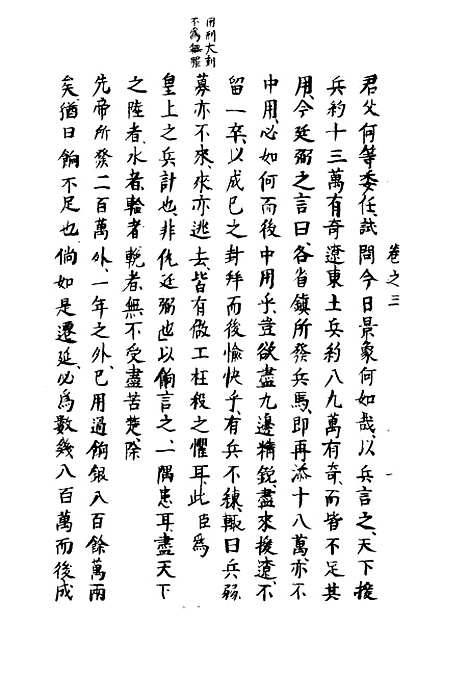 卷之三
一
君父何等委任試問今日景象何如哉以兵言之天下援
兵約十三萬有奇遼東土兵約八九萬有奇而皆不足其
用今廷弼之言曰各省鎮所發兵馬即再添十八萬亦不
中用必如何而後中用乎豈欲盡九邊精銳盡來援遼不
留一卒以成己之封拜而後愉快乎有兵不練輒曰兵弱
募亦不來來亦逃去皆有做工枉殺之懼耳此臣為
皇上之兵計也非仇廷弼也以餉言之一隅患耳盡天下
之陸者水者輪者輓者無不受盡苦楚除
先帝所發二百萬外一年之外已用過餉銀八百餘萬兩
矣猶曰餉不足也倘如是遷延必為數幾八百萬而後成
用刑大刻
不為無罪